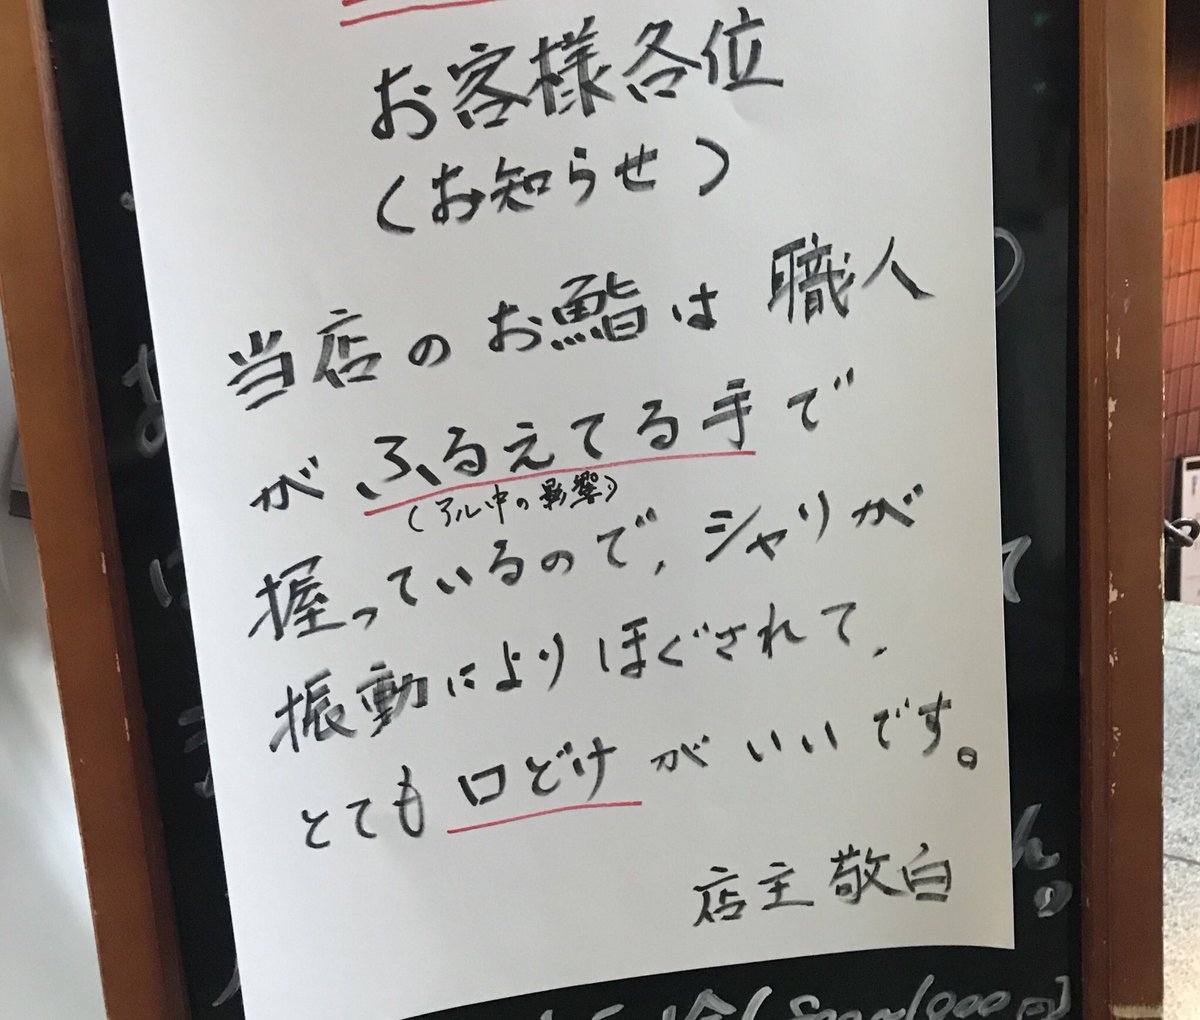 お客様各位
(お知らせ)
当店のお鮨は職人
がふるえてる手で
(アル中の影響)
握っているので、シャリが
振動によりほぐされて、
とても口どけがいいです。
店主敬白